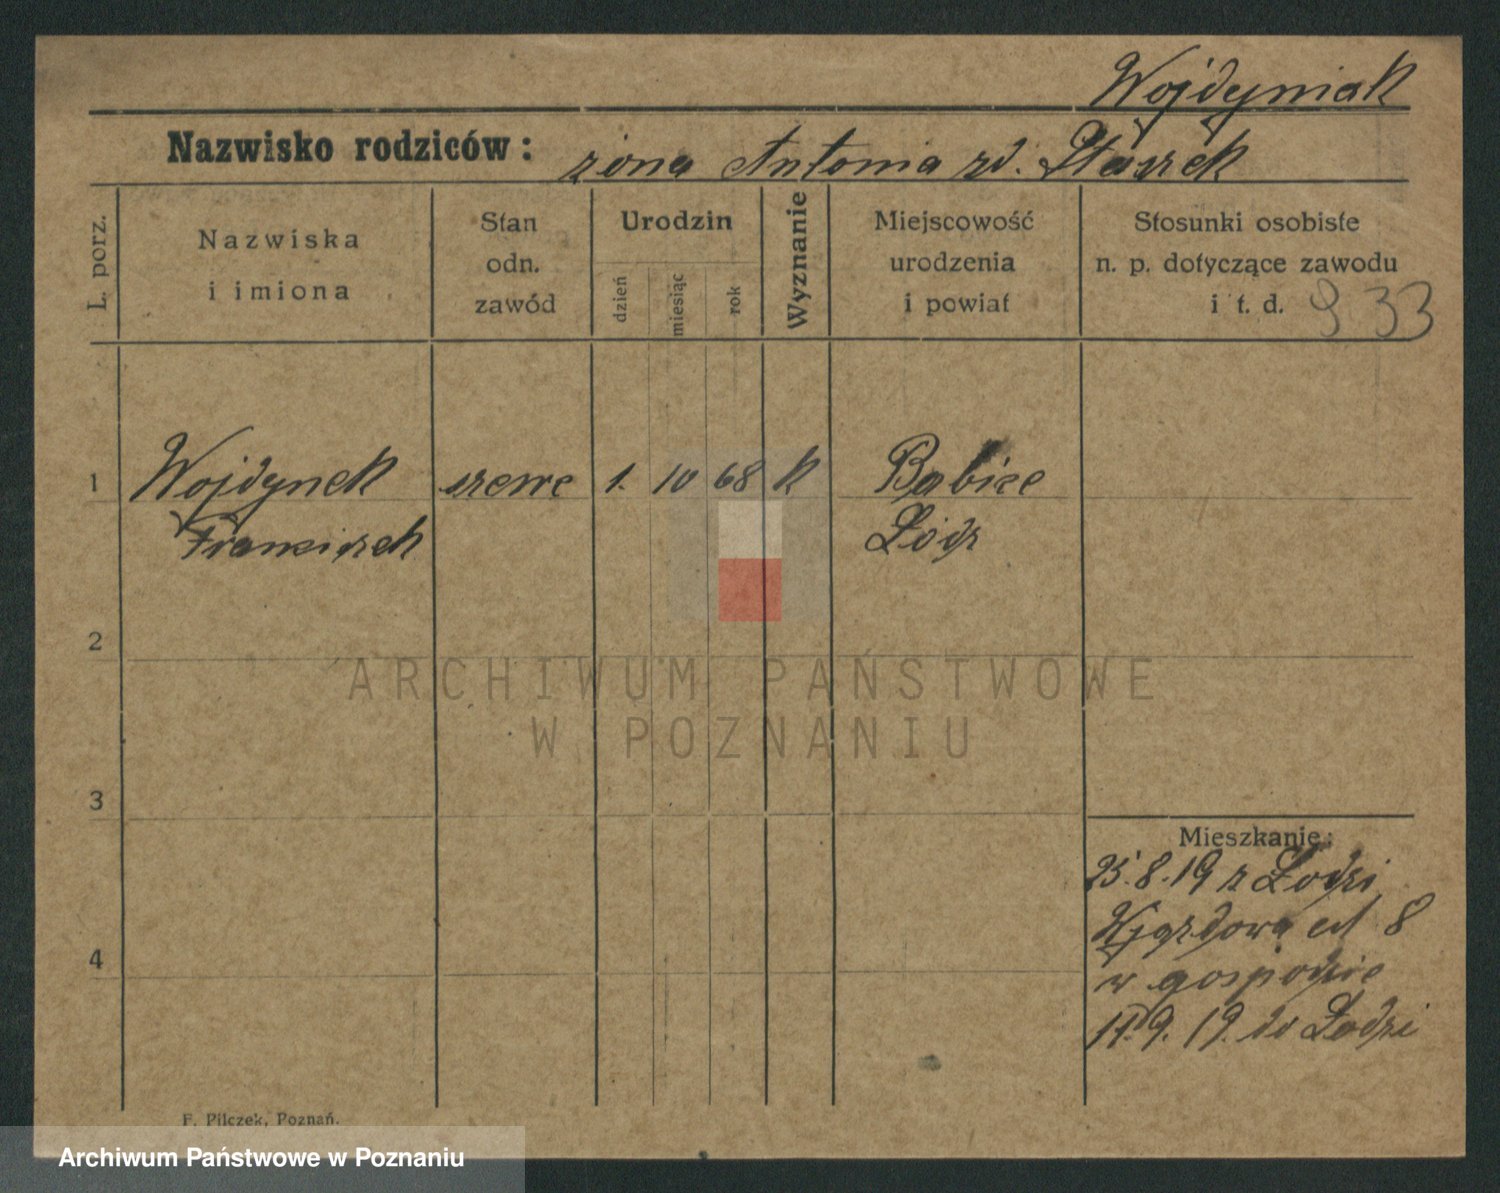 Wojdyniak
Nazwisko rodziców: żona Antonia zd. Staszek
L. porz.
Nazwiska
i imiona
Stan
odn.
zawód
Urodzin
dzień
miesiąc
rok
Wyznanie
Miejscowość
urodzenia
i powiat
Stosunki osobiste
n. p. dotyczące zawodu
i t. d. 933
1 Wojdynek szewc 1. 10 68 k Babice
Franciszek Łódź
2
3
4
Mieszkanie:
25.8.19 z Łodzi
Wjazdowa 8
w gospodzie
11.9.19. do Łodzi
F. Pilczek, Poznań.
ARCHIWUM PAŃSTWOWE
W POZNANIU
Archiwum Państwowe w Poznaniu